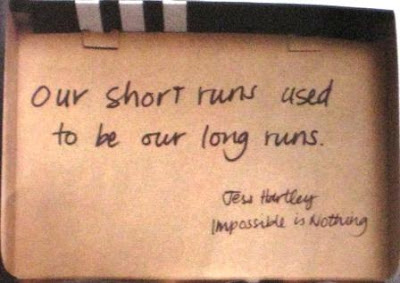 Our short runs used
to be our long runs.
Jess Hartley
Impossible is Nothing